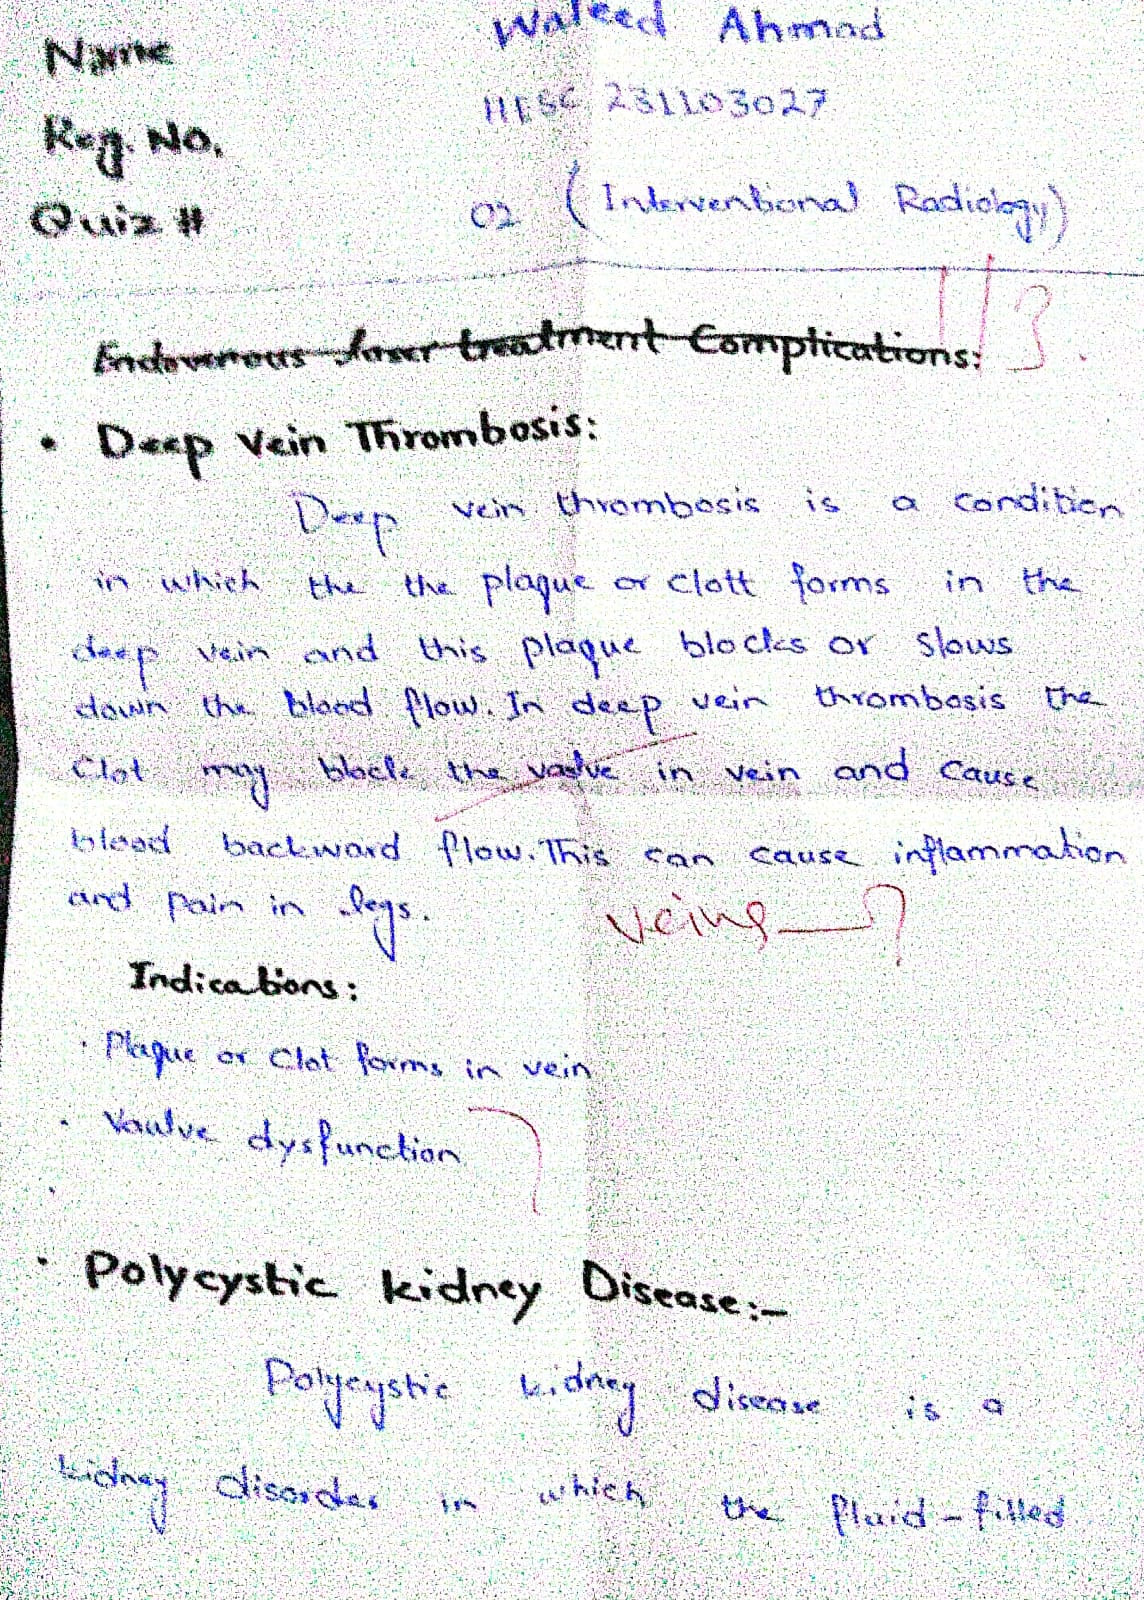 Name Waleed Ahmad
Reg. No. 231103027
Quiz # 02 (Interventional Radiology)
1/3.
Endovenous laser treatment Complications:
• Deep Vein Thrombosis:
Deep vein thrombosis is a condition
in which the the plaque or clott forms in the
deep vein and this plaque blocks or slows
down the blood flow. In deep vein thrombosis the
Clot may block the vaulve in vein and cause
blood backward flow. This can cause inflammation
and pain in legs.
veins ?
Indications:
· Plaque or Clot forms in vein
· Vaulve dysfunction
·
· Polycystic kidney Disease:-
Polycystic kidney disease is a
kidney disorder in which the fluid-filled